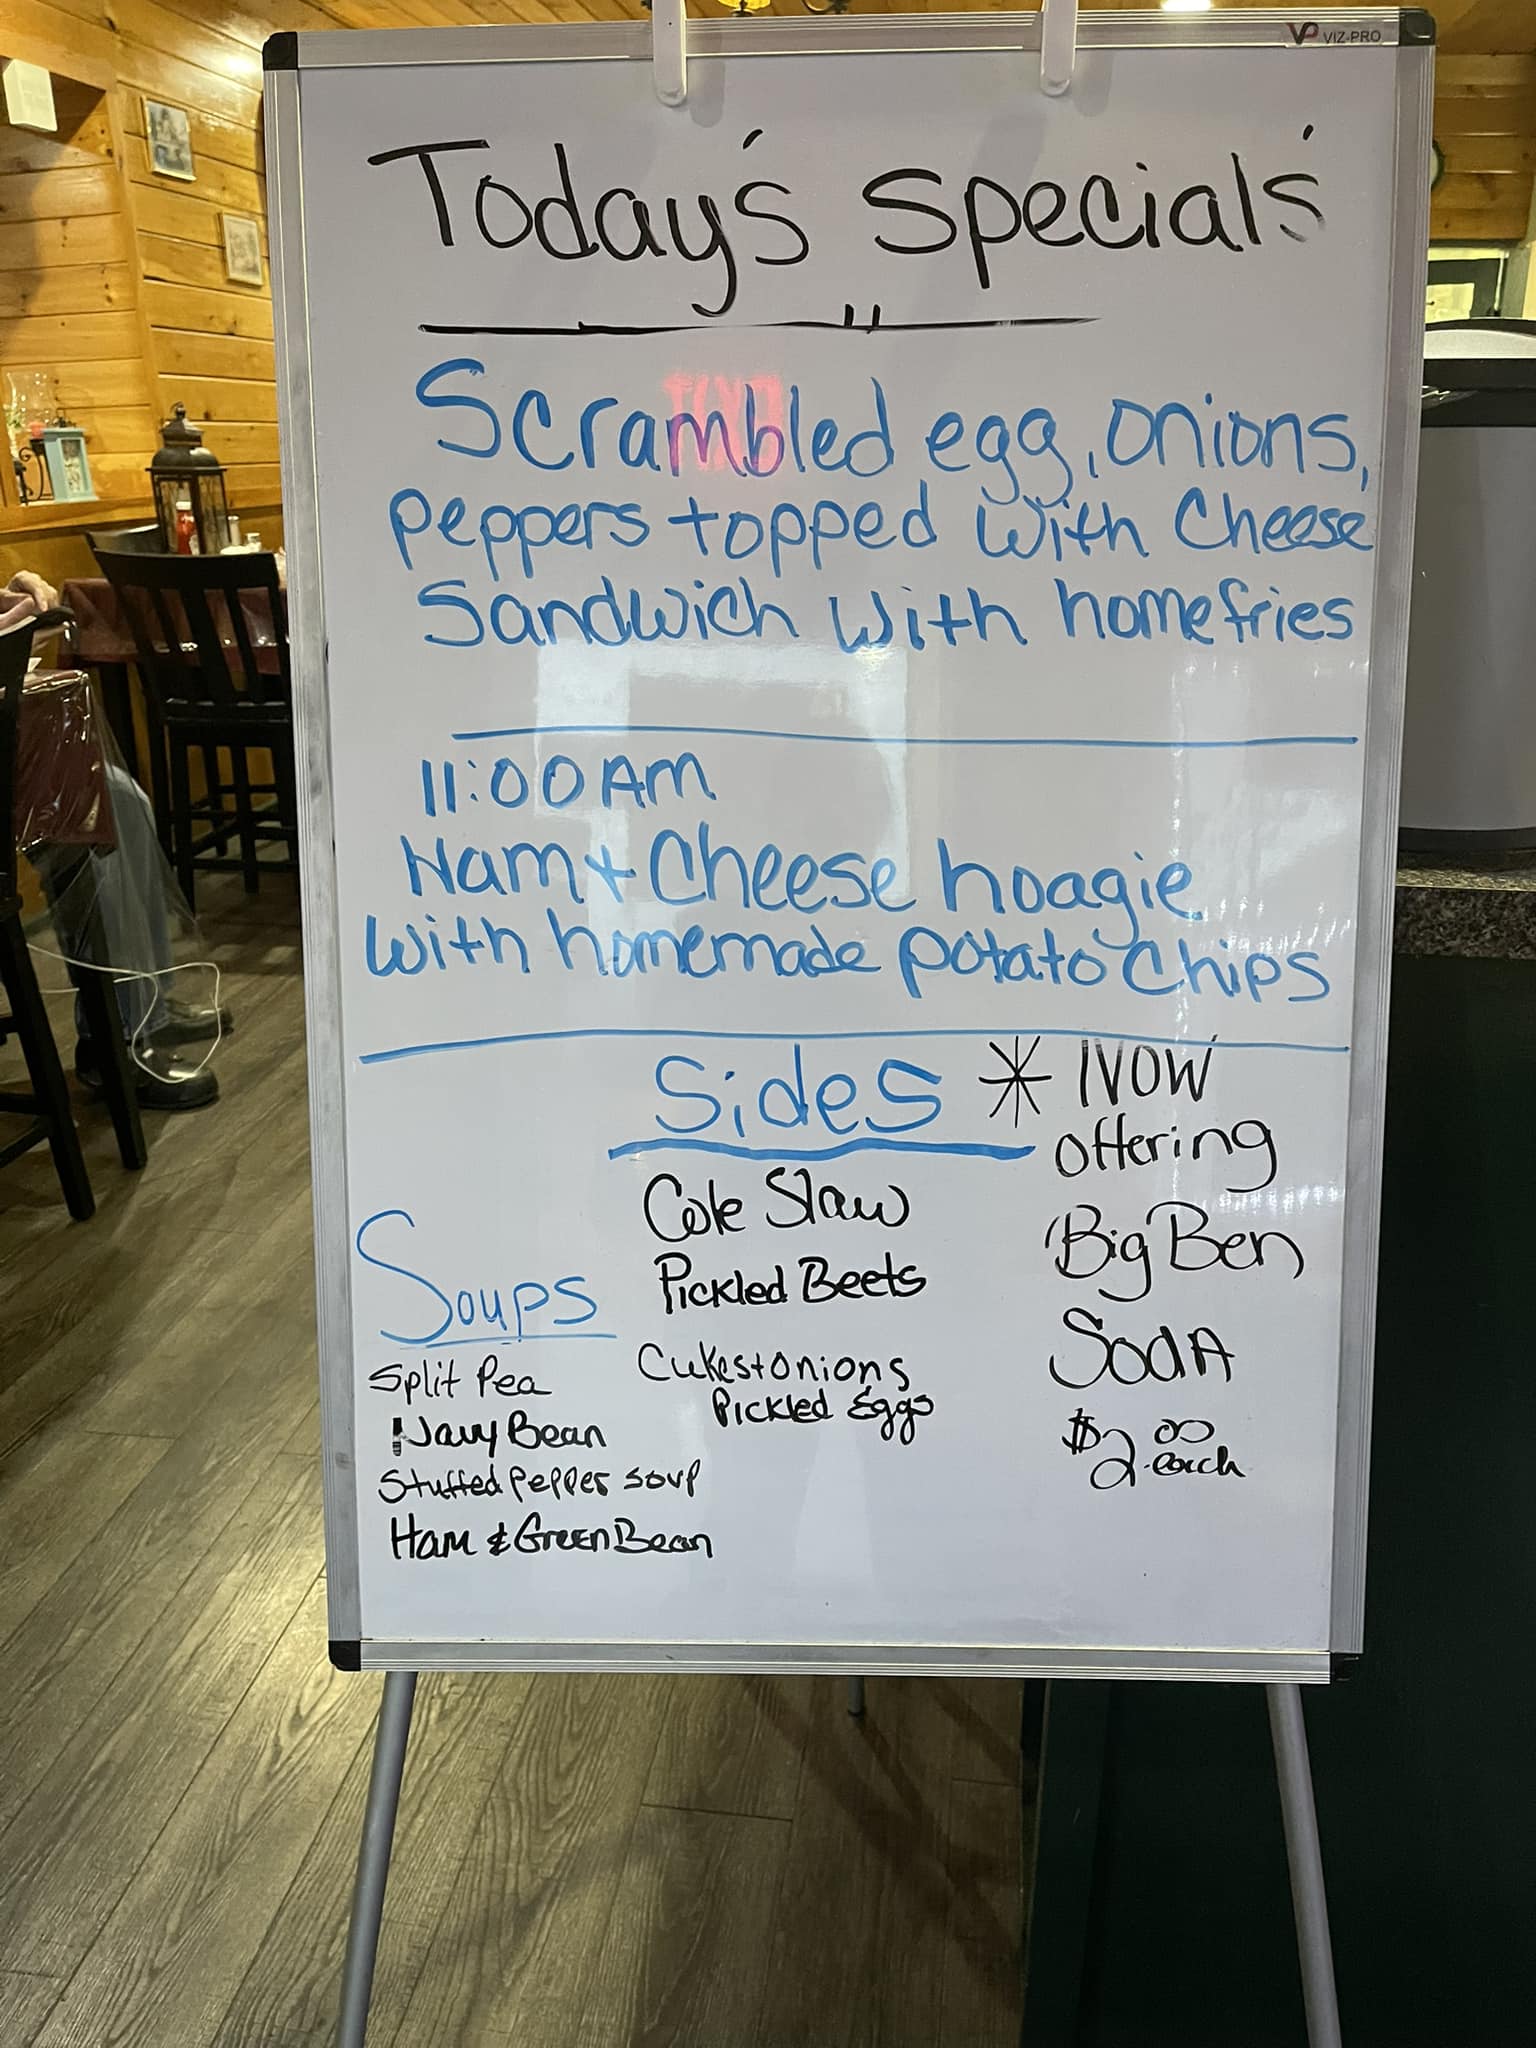 VP VIZ-PRO
Today's Specials'
Scrambled egg, onions,
peppers topped with Cheese
Sandwich with homefries
11:00 AM
Ham + Cheese hoagie
with homemade potato Chips
Sides
* NOW
offering
Big Ben
SodA
$2.00
each
Cole Slaw
Pickled Beets
Cukes + Onions
Pickled Eggs
Soups
Split Pea
Navy Bean
Stuffed pepper soup
Ham & Green Bean